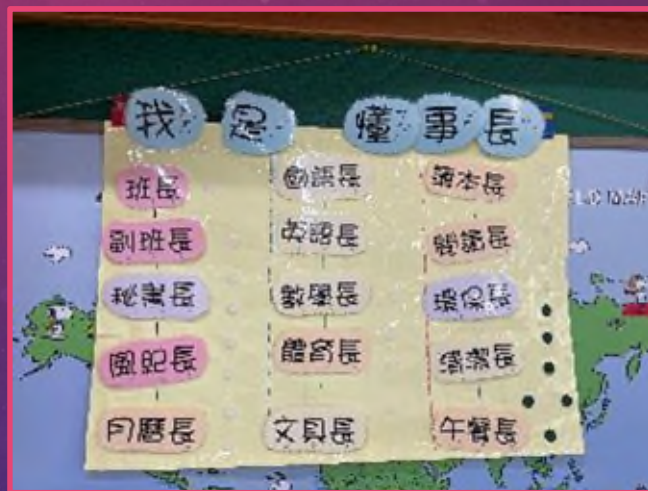 我是懂事長
班長
副班長
秘書長
風紀長
月曆長
國語長
英語長
數學長
體育長
文具長
簿本長
閱讀長
環保長
清潔長
午餐長